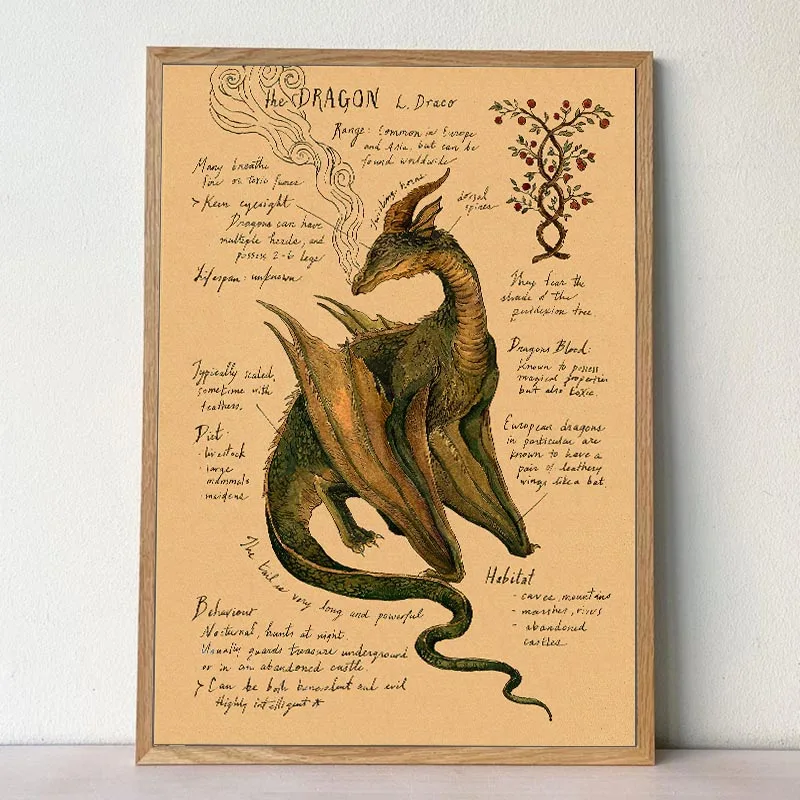 the DRAGON L. Draco
Range: Common in Europe
and Asia, but can be
found worldwide
Many breathe
fire or toxic fumes
> Keen eyesight
Dragons can have
multiple heads, and
possess 2-6 legs
Lifespan: unknown
twisting horns
dorsal
spines
They fear the
shade of the
peridexion tree
Dragons Blood:
known to possess
magical properties
but also toxic.
Typically scaled,
sometime with
feathers.
Diet:
· livestock
· large
mammals
· maidens
European dragons
in particular are
known to have a
pair of leathery
wings like a bat.
The tail is very long and powerful
Habitat
- caves, mountains
- marshes, rivers
- abandoned
castles
Behaviour
Nocturnal, hunts at night.
Usually guards treasure underground
or in an abandoned castle.
> Can be both benevolent and evil
Highly intelligent *